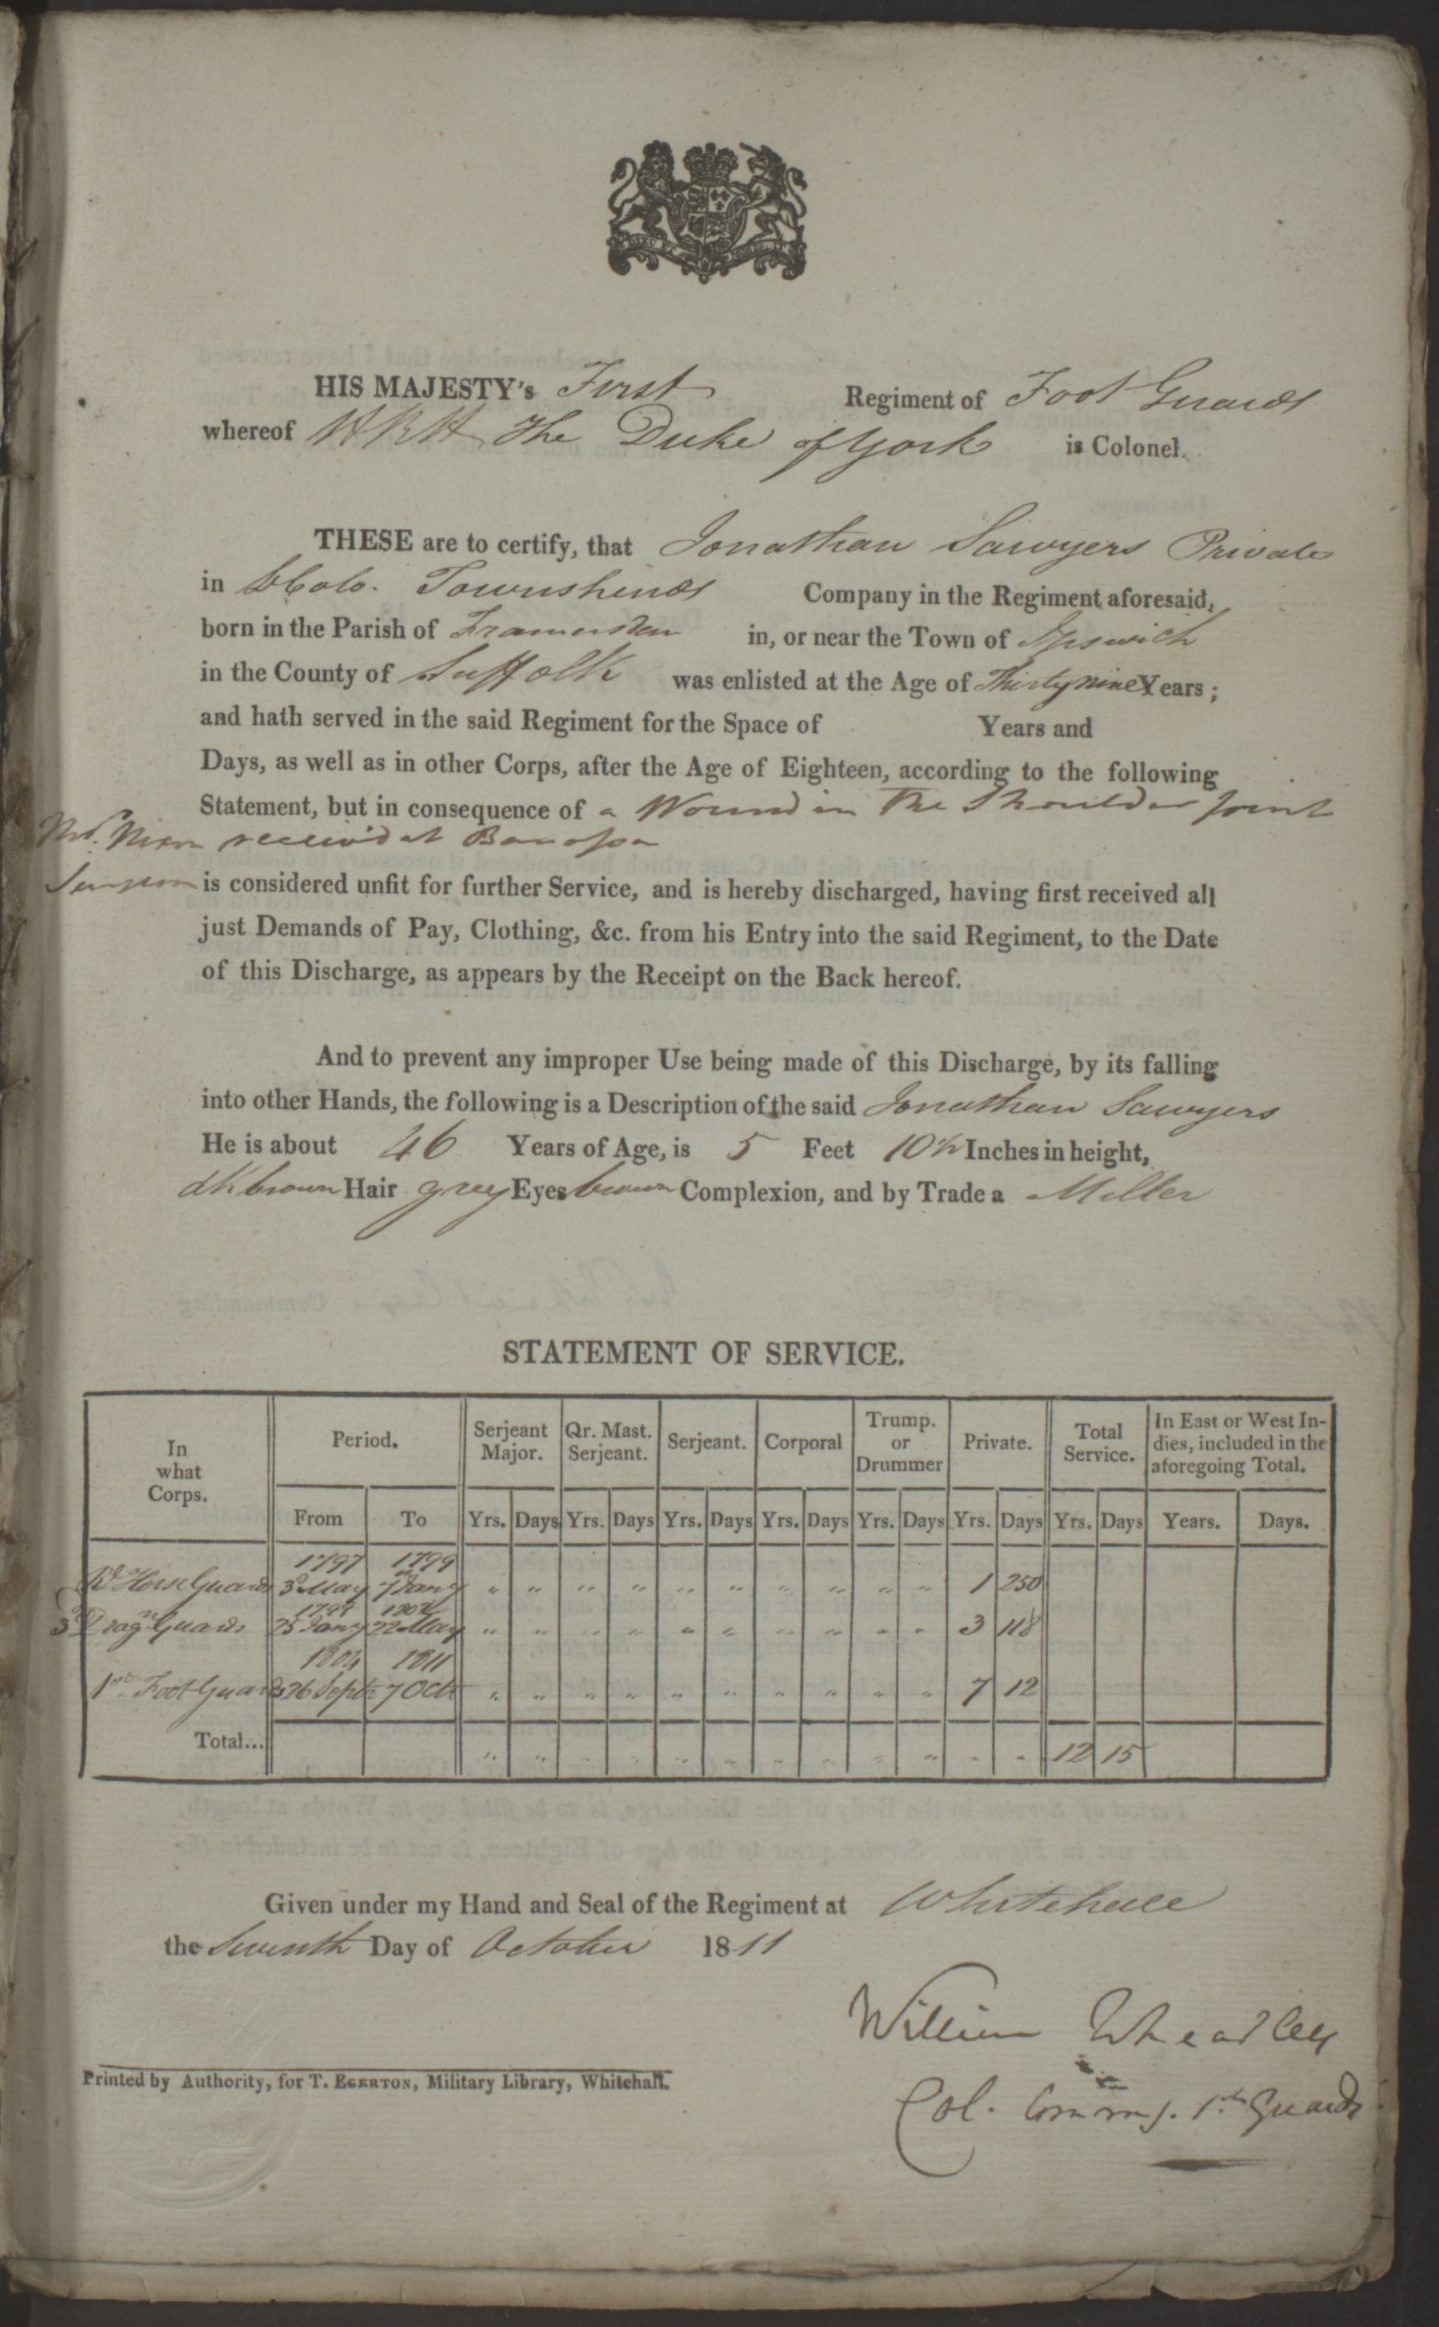 HIS MAJESTY's First Regiment of Foot Guards
whereof HRH The Duke of York is Colonel.
THESE are to certify, that Jonathan Sawyers Private
in Townshends Company in the Regiment aforesaid,
born in the Parish of in, or near the Town of Ipswich
in the County of Suffolk was enlisted at the Age of Thirty nine Years;
and hath served in the said Regiment for the Space of Years and
Days, as well as in other Corps, after the Age of Eighteen, according to the following
Statement, but in consequence of a Wound in the Shoulder joint
received at Barossa
is considered unfit for further Service, and is hereby discharged, having first received all
just Demands of Pay, Clothing, &c. from his Entry into the said Regiment, to the Date
of this Discharge, as appears by the Receipt on the Back hereof.
And to prevent any improper Use being made of this Discharge, by its falling
into other Hands, the following is a Description of the said Jonathan Sawyers
He is about 46 Years of Age, is 5 Feet 10½ Inches in height,
dk brown Hair grey Eyes brown Complexion, and by Trade a Miller
STATEMENT OF SERVICE.
In what Corps. Period. Serjeant Major. Qr. Mast. Serjeant. Serjeant. Corporal Trump. or Drummer Private. Total Service. In East or West Indies, included in the aforegoing Total.
From To Yrs. Days Yrs. Days Yrs. Days Yrs. Days Yrs. Days Yrs. Days Yrs. Days Years. Days.
1797 1799
Rl Horse Guards 3d May 7 Jany " " " " " " " " " " 1 250
1799 1802
3d Dragn Guards 25 Jany 22 May " " " " " " " " " " 3 118
1804 1811
1st Foot Guards 26 Septr 7 Octr " " " " " " " " " " 7 12
Total... " " " " " " " " " " " " 12 15
Given under my Hand and Seal of the Regiment at Whitehall
the Seventh Day of October 1811
William Wheatley
Col. Commg. 1st Guards
Printed by Authority, for T. EGERTON, Military Library, Whitehall.